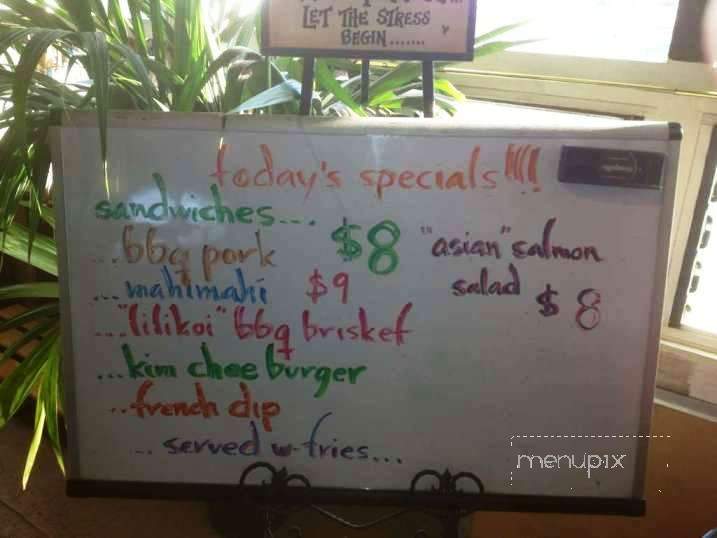 LET THE STRESS
BEGIN.......
today's specials!!!!
sandwiches... $8
...bbq pork
...mahimahi $9
..."lilikoi" bbq brisket
...kim chee burger
..french dip
... served w-fries...
"asian" salmon
salad $8
menupix